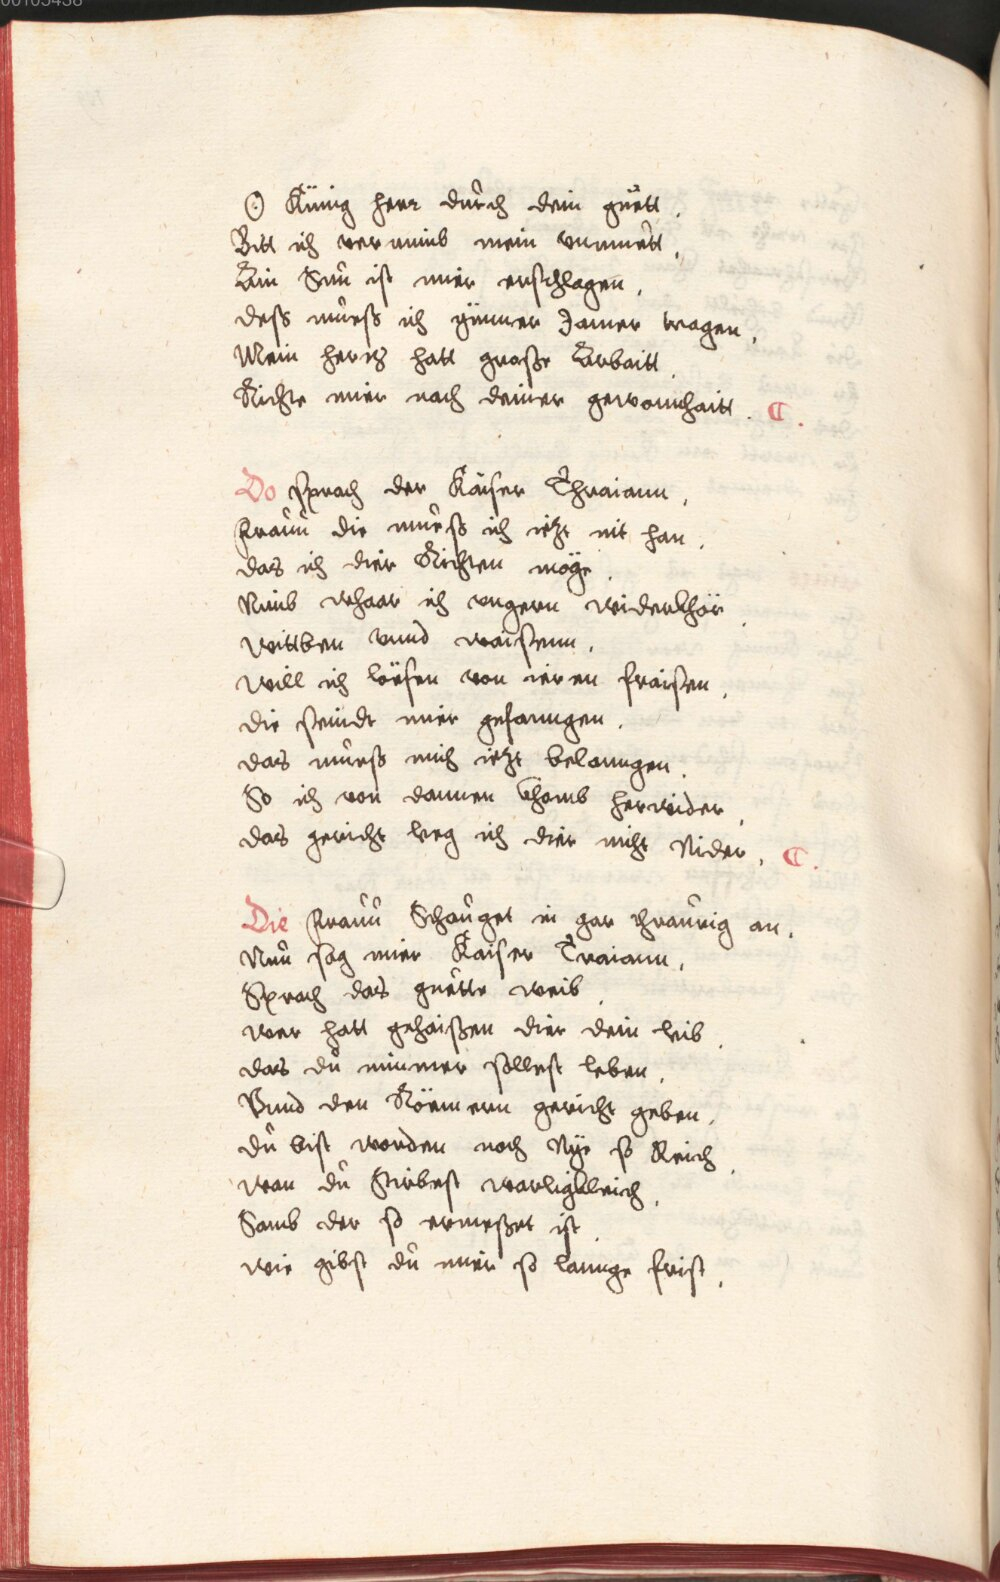 00105458
O Künig herr durch dein guett.
Bitt ich vernimb mein vnmuett.
Ain Sun ist mier erschlagen.
dess muess ich ymmer Jamer tragen.
Mein hertz hatt große Arbaitt.
Richte mier nach deiner gewonhaitt.
Do sprach der Kaiser Thraiann.
fraüü die muess ich ietzt nit han.
das ich dier Richten möge.
Nimb whaar ich vngern widerkhör.
wittben vnnd waißenn.
will ich lößen von ieren fraißen.
die seindt mier gefanngen.
das muess mich ietzt belanngen.
So ich von dannen khomb herwider.
das gericht leg ich dier nicht Nider.
Die fraüü Schauget in gar thraurig an.
Nun sag mier Kaiser Traiann.
Sprach das guette weib.
wer hatt gehaißen dier dein leib.
das du nimmer sollest leben.
Vnnd den Römern gericht geben.
du bist worden noch Nye so Reich.
wan du Stirbest warligkleich.
Samb der so ermeßet ist.
wie gibst du mier so lannge frist.